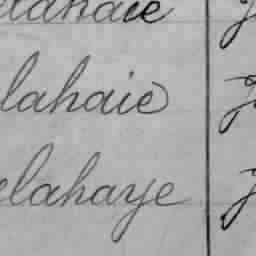 elahaie
lahaie
elahaye